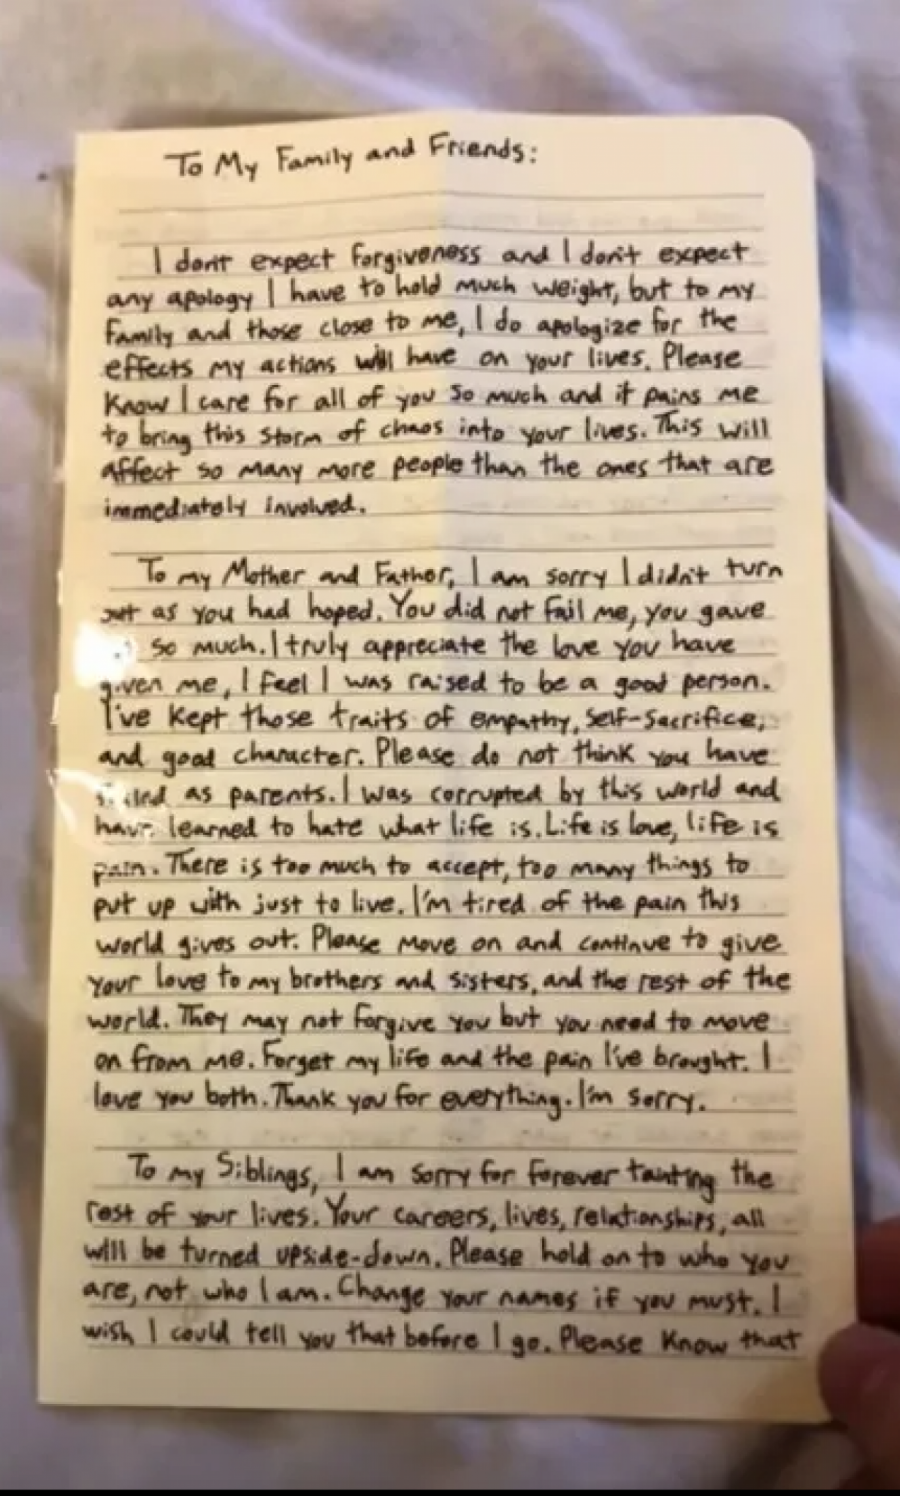 To My Family and Friends:
I dont expect forgiveness and I don't expect
any apology I have to hold much weight, but to my
family and those close to me, I do apologize for the
effects my actions will have on your lives. Please
Know I care for all of you so much and it pains me
to bring this storm of chaos into your lives. This will
affect so many more people than the ones that are
immediately involved.
To my Mother and Father, I am sorry I didn't turn
out as you had hoped. You did not fail me, you gave
so much. I truly appreciate the love you have
given me, I feel I was raised to be a good person.
I've kept those traits of empathy, self-sacrifice,
and good character. Please do not think you have
failed as parents. I was corrupted by this world and
have learned to hate what life is. Life is love, life is
pain. There is too much to accept, too many things to
put up with just to live. I'm tired of the pain this
world gives out. Please move on and continue to give
your love to my brothers and sisters, and the rest of the
world. They may not forgive you but you need to move
on from me. Forget my life and the pain I've brought. I
love you both. Thank you for everything. I'm sorry.
To my Siblings, I am sorry for forever tanting the
rest of your lives. Your careers, lives, relationships, all
will be turned upside-down. Please hold on to who you
are, not who I am. Change your names if you must. I
wish I could tell you that before I go. Please Know that